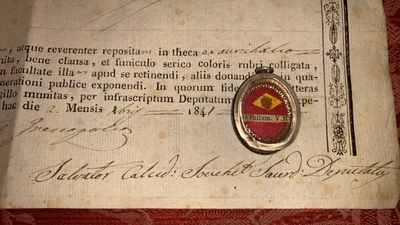 , atque reverenter repositam in theca ex aurichalco
nita, bene clausa, et funiculo serico coloris rubri colligata,
n facultate illam apud se retinendi, aliis donandi, in qua-
nerationi publice exponendi. In quorum fidem litteras
illo munitas, per infrascriptum Deputatum expe-
hac die 2. Mensis 1841
Salvator Calcid: Deputatus
Philum. V M